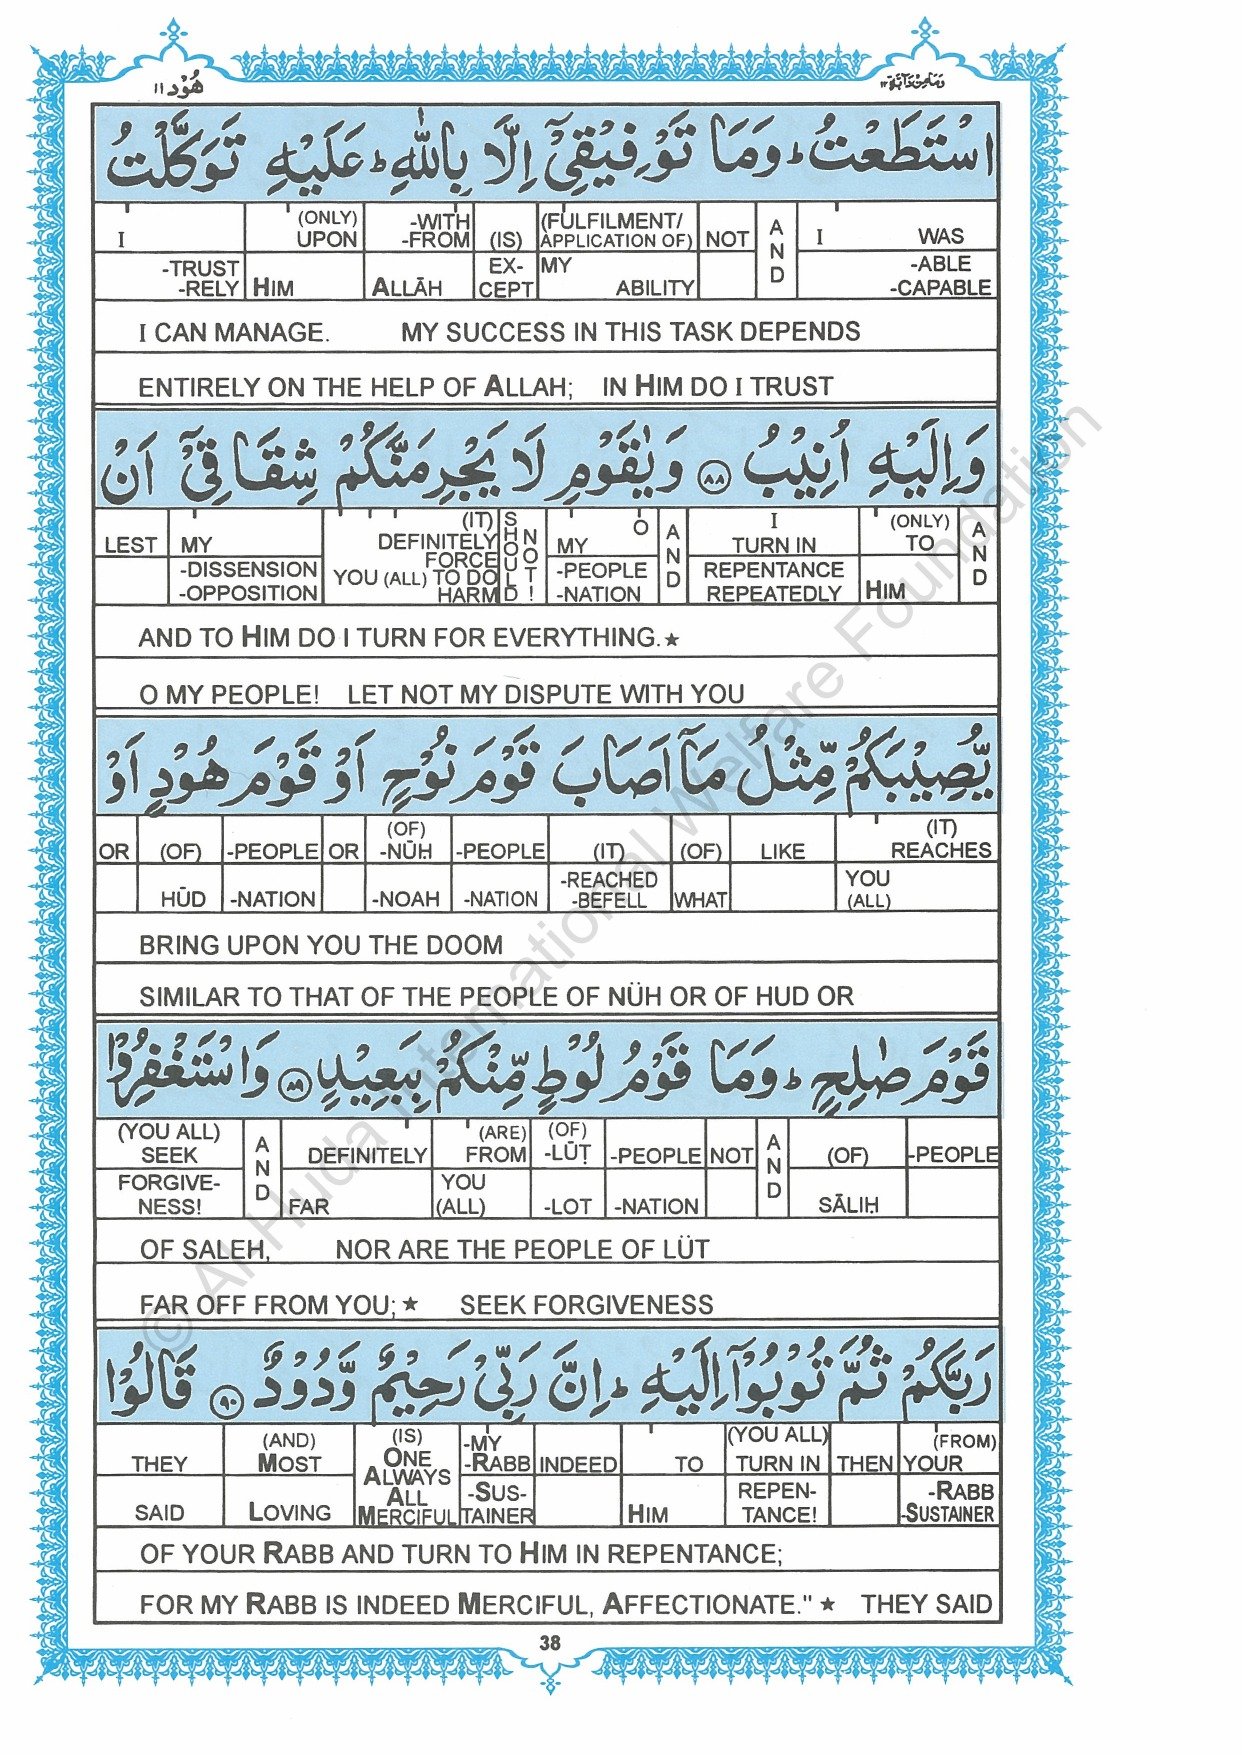 هُوْد ١١
وَمَا مِنْ دَآبَّة ١٢
اسْتَطَعْتُ ؕ وَمَا تَوْفِيْقِيْۤ اِلَّا بِاللّٰهِ ؕ عَلَيْهِ تَوَكَّلْتُ
I (ONLY) UPON -WITH -FROM (IS) (FULFILMENT/ APPLICATION OF) NOT AND I WAS
-TRUST -RELY HIM ALLĀH EX- CEPT MY ABILITY -ABLE -CAPABLE
I CAN MANAGE. MY SUCCESS IN THIS TASK DEPENDS
ENTIRELY ON THE HELP OF ALLAH; IN HIM DO I TRUST
وَاِلَيْهِ اُنِيْبُ ﴿٨٨﴾ وَيٰقَوْمِ لَا يَجْرِمَنَّكُمْ شِقَاقِيْۤ اَنْ
LEST MY (IT) DEFINITELY FORCE YOU (ALL) TO DO HARM SHOULD NOT! MY O AND I TURN IN (ONLY) TO AND
-DISSENSION -OPPOSITION -PEOPLE -NATION REPENTANCE REPEATEDLY HIM
AND TO HIM DO I TURN FOR EVERYTHING.★
O MY PEOPLE! LET NOT MY DISPUTE WITH YOU
يُّصِيْبَكُمْ مِّثْلُ مَاۤ اَصَابَ قَوْمَ نُوْحٍ اَوْ قَوْمَ هُوْدٍ اَوْ
OR (OF) -PEOPLE OR (OF) -NŪH -PEOPLE (IT) (OF) LIKE (IT) REACHES
HŪD -NATION -NOAH -NATION -REACHED -BEFELL WHAT YOU (ALL)
BRING UPON YOU THE DOOM
SIMILAR TO THAT OF THE PEOPLE OF NÜH OR OF HUD OR
قَوْمَ صٰلِحٍ ؕ وَمَا قَوْمُ لُوْطٍ مِّنْكُمْ بِبَعِيْدٍ ﴿٨٩﴾ وَاسْتَغْفِرُوْا
(YOU ALL) SEEK AND DEFINITELY (ARE) FROM (OF) -LŪṬ -PEOPLE NOT AND (OF) -PEOPLE
FORGIVE- NESS! FAR YOU (ALL) -LOT -NATION SĀLIḤ
OF SALEH, NOR ARE THE PEOPLE OF LÜT
FAR OFF FROM YOU;★ SEEK FORGIVENESS
رَبَّكُمْ ثُمَّ تُوْبُوْۤا اِلَيْهِ ؕ اِنَّ رَبِّيْ رَحِيْمٌ وَّدُوْدٌ ﴿٩٠﴾ قَالُوْا
THEY (AND) MOST (IS) ONE ALWAYS ALL MERCIFUL -MY -RABB INDEED TO (YOU ALL) TURN IN THEN (FROM) YOUR
SAID LOVING -SUS- TAINER HIM REPEN- TANCE! -RABB -SUSTAINER
OF YOUR RABB AND TURN TO HIM IN REPENTANCE;
FOR MY RABB IS INDEED MERCIFUL, AFFECTIONATE." ★ THEY SAID
38
© Al-Huda International Welfare Foundation